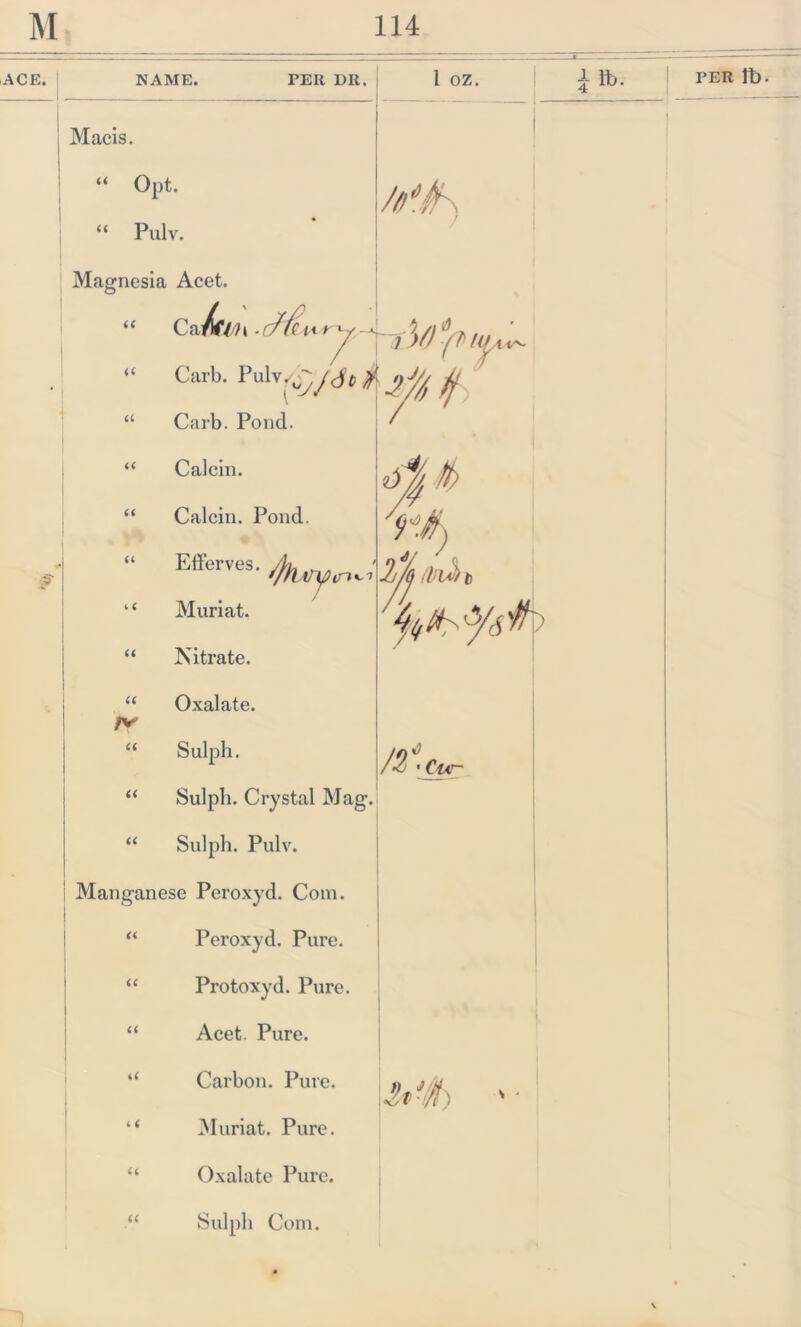 M 114
ACE. NAME. PER DR. 1 OZ. ¼ lb. PER lb.
Macis.
“ Opt. 10d. lb
“ Pulv.
Magnesia Acet.
“ Calcin. Henry
“ Carb. Pulv. 2/ lb
“ Carb. Pond.
“ Calcin. 5/4 lb
“ Calcin. Pond. 9d. lb
“ Efferves. 2/9
“ Muriat. lb lb
“ Nitrate.
“ Oxalate.
“ Sulph. 12d. Cwt
“ Sulph. Crystal Mag.
“ Sulph. Pulv.
Manganese Peroxyd. Com.
“ Peroxyd. Pure.
“ Protoxyd. Pure.
“ Acet. Pure.
“ Carbon. Pure. lb
“ Muriat. Pure.
“ Oxalate Pure.
“ Sulph Com.